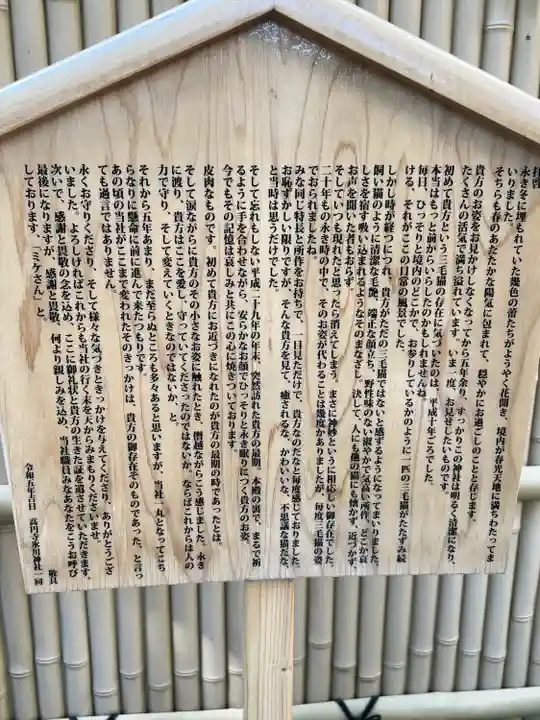 拝啓
永き冬に埋もれていた幾色の蕾たちがようやく花開き、境内が春光天地に満ちわたってま
いりました。
そちらも春のあたたかな陽気に包まれて、穏やかにお過ごしのことと存じます。
貴方のお姿をお見かけしなくなってから五年余り、すっかりこの神社は明るく清潔になり、
たくさんの活気で満ち溢れています。いま一度、お見せしたいものです。
初めて貴方という三毛猫の存在に気づいたのは、平成十年ごろでした。
本当はもっと前からいらしたのかもしれませんね。
毎日、ひっそりと境内のどこかで、お参りしているかのように一匹の三毛猫がたたずみ続
ける、それがここの日常の風景でした。
しかし時が経つにつれ、貴方がただの三毛猫ではないと感ずるようになってまいりました。
飼い猫のように清潔な毛艶、端正な顔立ち、野性味のない淑やかで気高い所作、どこか哀
しさを宿す吸い込まれるようなそのまなざし。決して、人にも他の猫にも懐かず、近づかず、
お声を聞いた者もおらず。
そしていつも現れたと思ったら消えてしまう。まさに神妙というに相応しい御存在でした。
二十年もの永き時の中で、そのお姿が代わることは幾度かありましたが、毎度三毛猫の姿
でおられましたね。
みな同じ特長と所作をお持ちで、一目見ただけで、貴方なのだなと毎度感じておりました。
お恥ずかしい限りですが、そんな貴方を見て、癒されるな、かわいいな、不思議な猫だな、
と当時は思うだけでした。
そして忘れもしない平成二十九年の年末、突然訪れた貴方の最期。本殿の裏で、まるで祈
るように手を合わせながら、安らかなお顔でひっそりと永き眠りにつく貴方のお姿。
今でもその記憶は哀しみと共にこの心に焼きついております。
皮肉なものです。初めて貴方にお近づきになれたのが貴方の最期の時であったとは。
そして涙ながらに貴方のその小さなお姿に触れたとき、僭越ながらこう感じました。永き
に渡り、貴方はここを愛し、守っていてくださったのではないか。ならばこれからは人の
力で守り、そして変えていくときなのではないか、と。
それから五年あまり、まだ至らぬところも多々あると思いますが、当社一丸となってこち
らなりに懸命に前に進んで来たつもりです。
あの頃の当社がここまで変われたそのきっかけは、貴方の御存在そのものであった、と言っ
ても過言ではありません。
永くお守りくださり、そして様々な気づきときっかけを与えてくださり、ありがとうござ
いました。よろしければこれからも当社の行く末を天からみまもりくださいませ。
次いで、感謝と畏敬の念を込め、ここに御礼状と貴方の生きた証を遺させていただきます。
最後になりますが、感謝と畏敬、何より親しみを込め、当社職員みなあなたをこうお呼び
しております。「ミケさん」と。
敬具
令和五年吉日　高円寺氷川神社一同